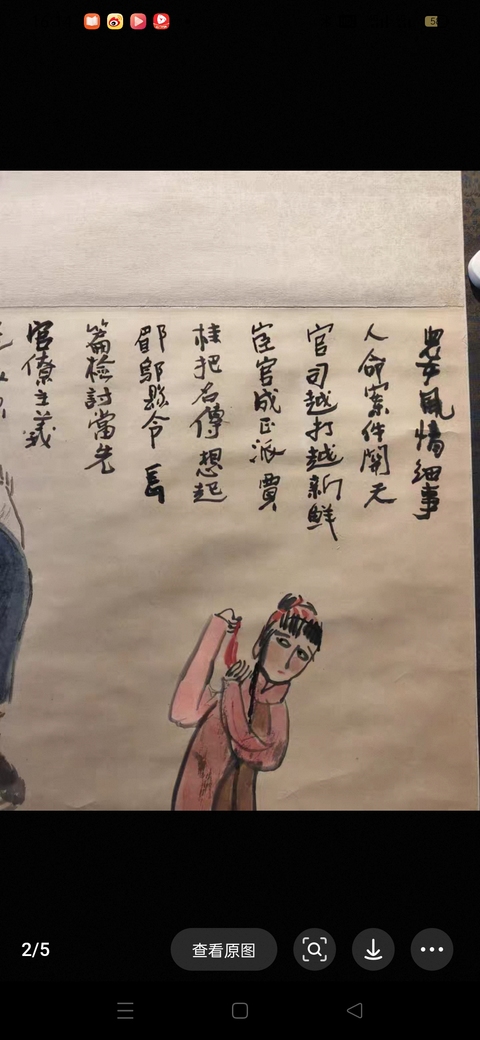 兒女風情细事
人命案件關天
官司越打越新鮮
宦官成正派賈
桂把名傳想起
郿鄔縣令長
篇檢討當先
官僚主義
2/5
查看原图